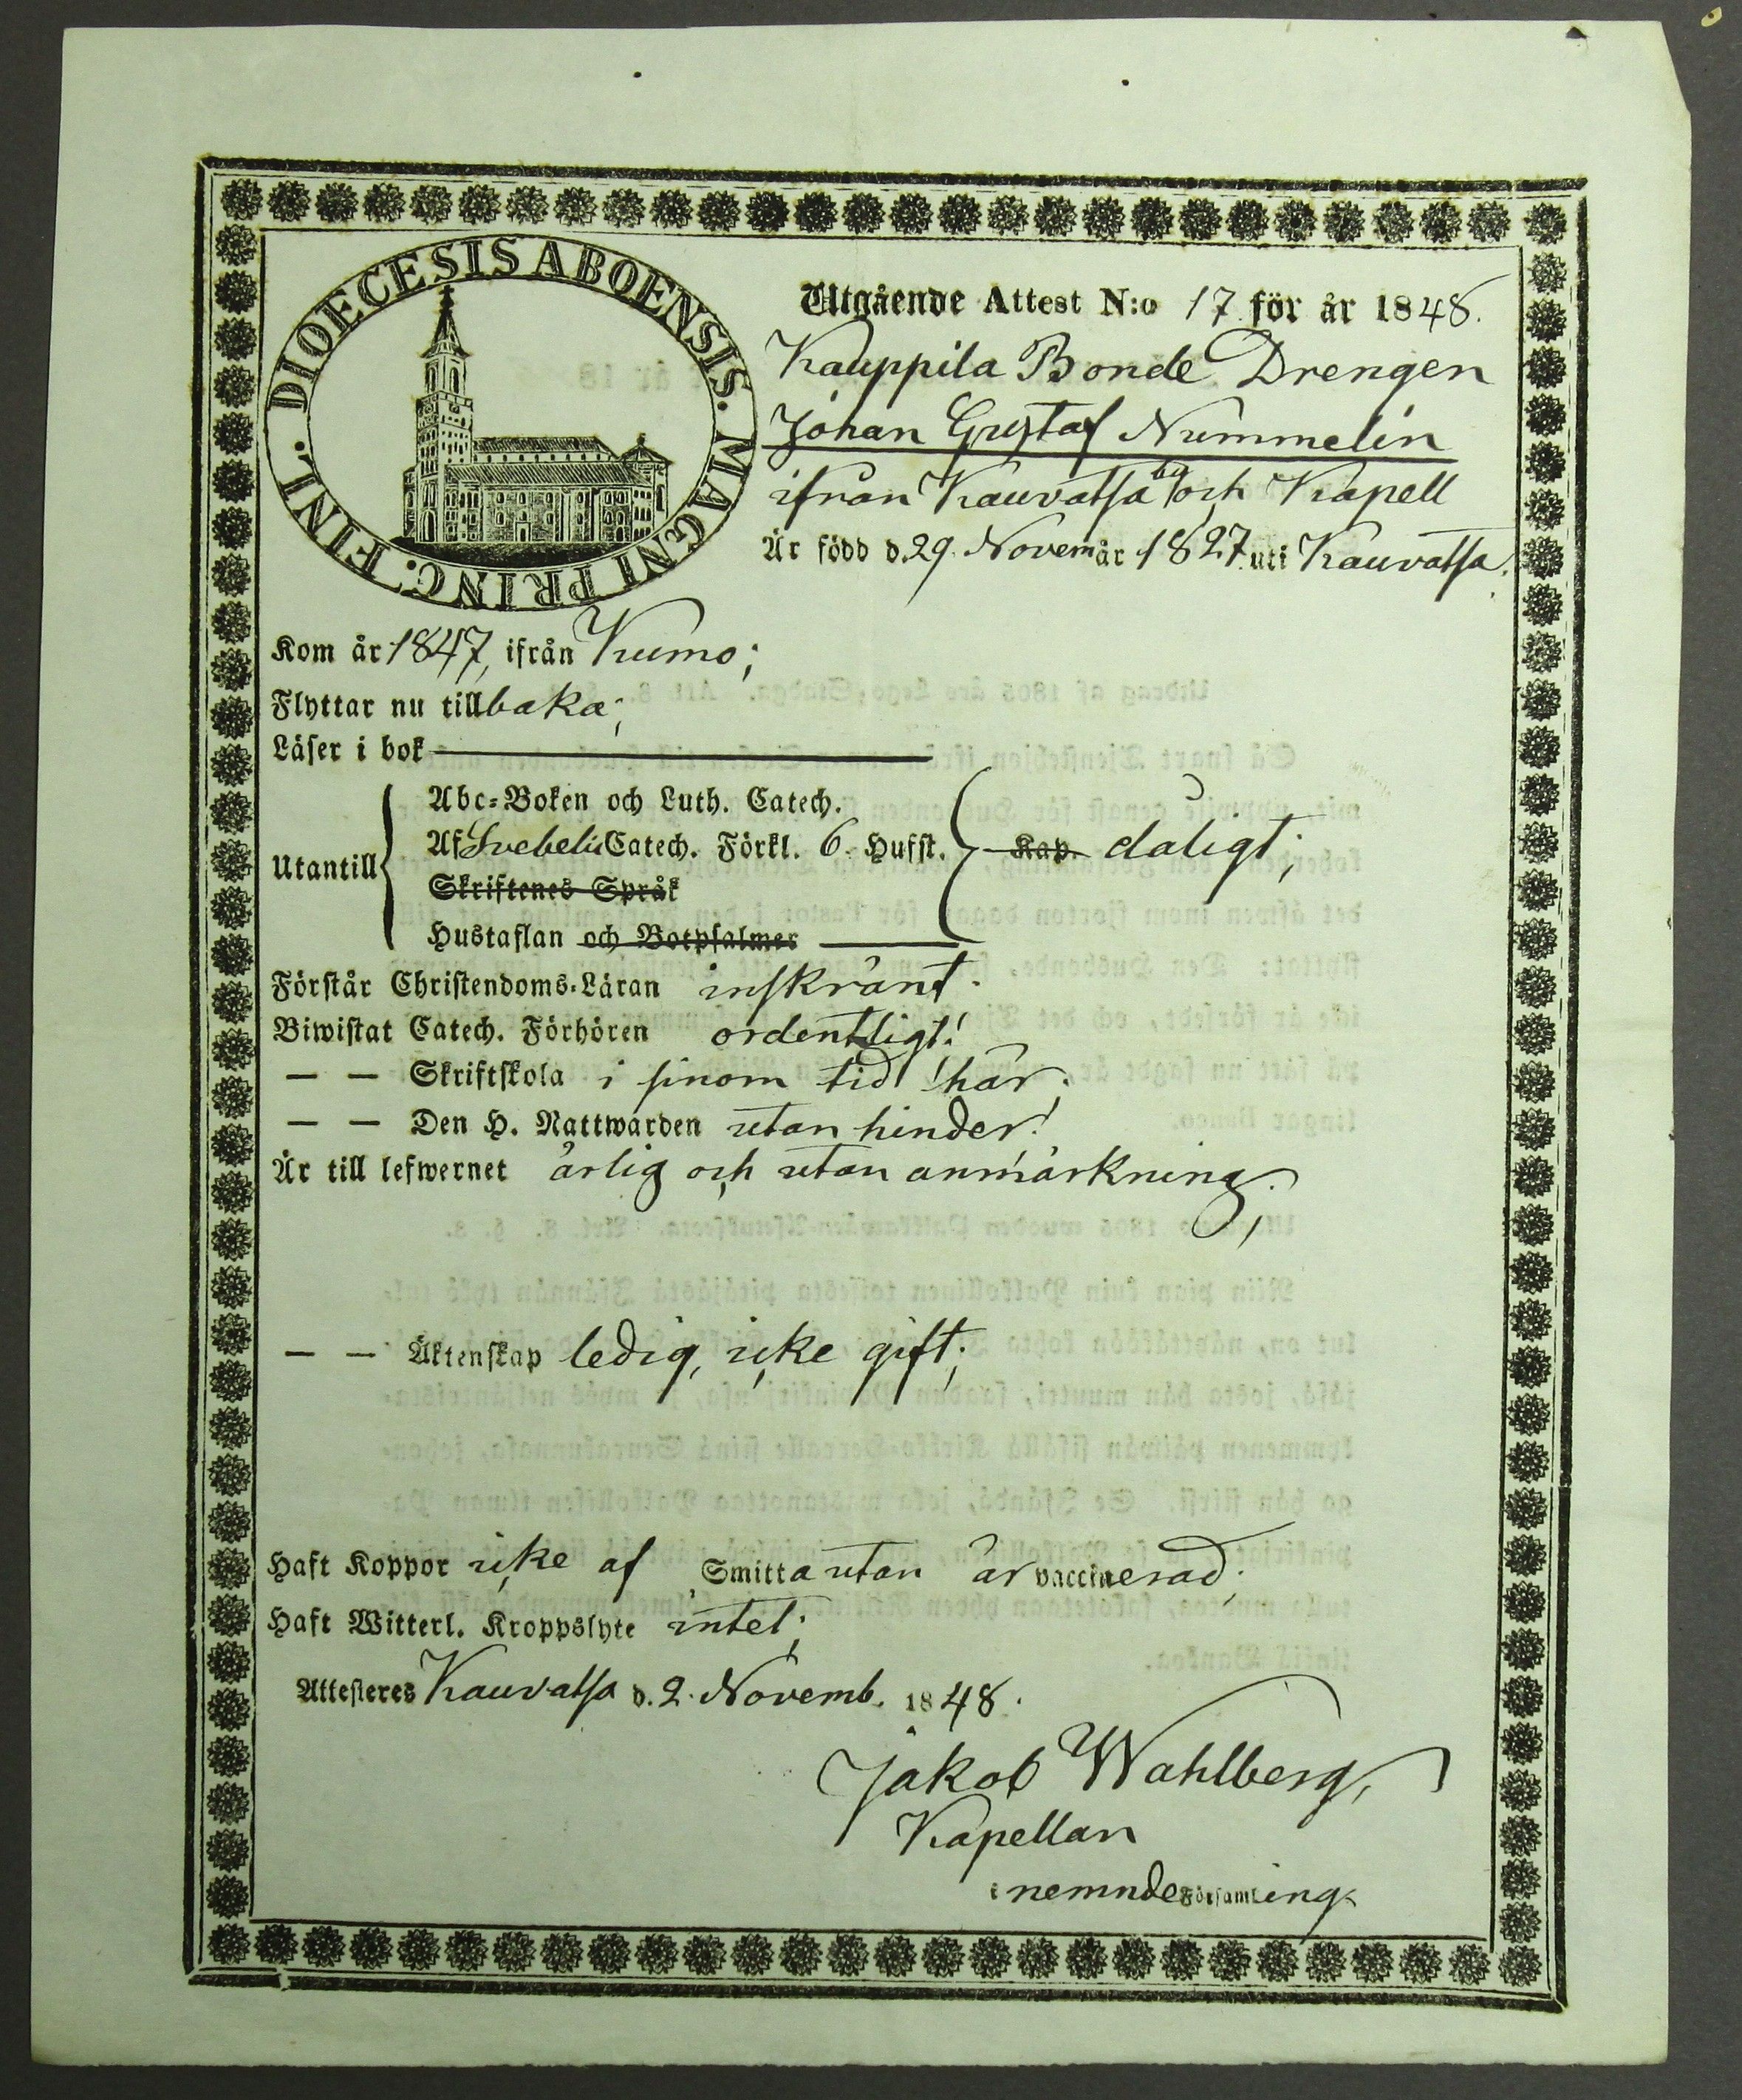 DIOECESIS ABOENSIS. MAGNI PRINC. FINL.
Utgående Attest N:o 17 för år 1848.
Kauppila Bonde Drengen
Johan Gustaf Nummelin
ifrån Kauvatsa by och Kapell
Är född d. 29. Novem år 1827 uti Kauvatsa.
Kom år 1847, ifrån Kumo;
Flyttar nu tillbaka;
Läser i bok
Utantill
Abc-Boken och Luth. Catech.
Af Svebelii Catech. Förkl. 6. Hufst. Kap. dåligt;
Skriftenes Språk
Hustaflan och Botpsalmer
Förstår Christendoms-Läran inskränt.
Biwistat Catech. Förhören ordentligt!
— — Skriftskola i sinom tid här;
— — Den H. Nattwarden utan hinder!
Är till lefwernet ärlig och utan anmärkning;
— — Äktenskap ledig, icke gift;
Haft Koppor icke af Smitta utan är vaccinerad;
Haft Witterl. Kroppslyte intet;
Attesteres Kauvatsa d. 2. Novemb. 1848.
Jakob Wahlberg,
Kapellan
i nemnde Församling